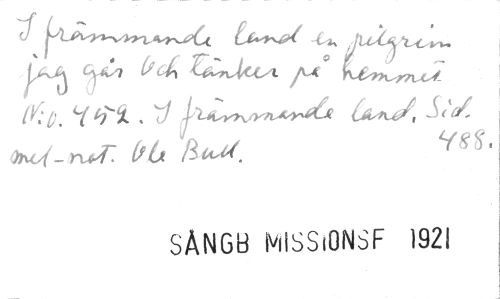 I främmande land en pilgrim
jag går Och tänker på hemmet
N:o. 452. I främmande land. Sid.
488.
mel-not. Ole Bull.
SÅNGB MISSIONSF 1921